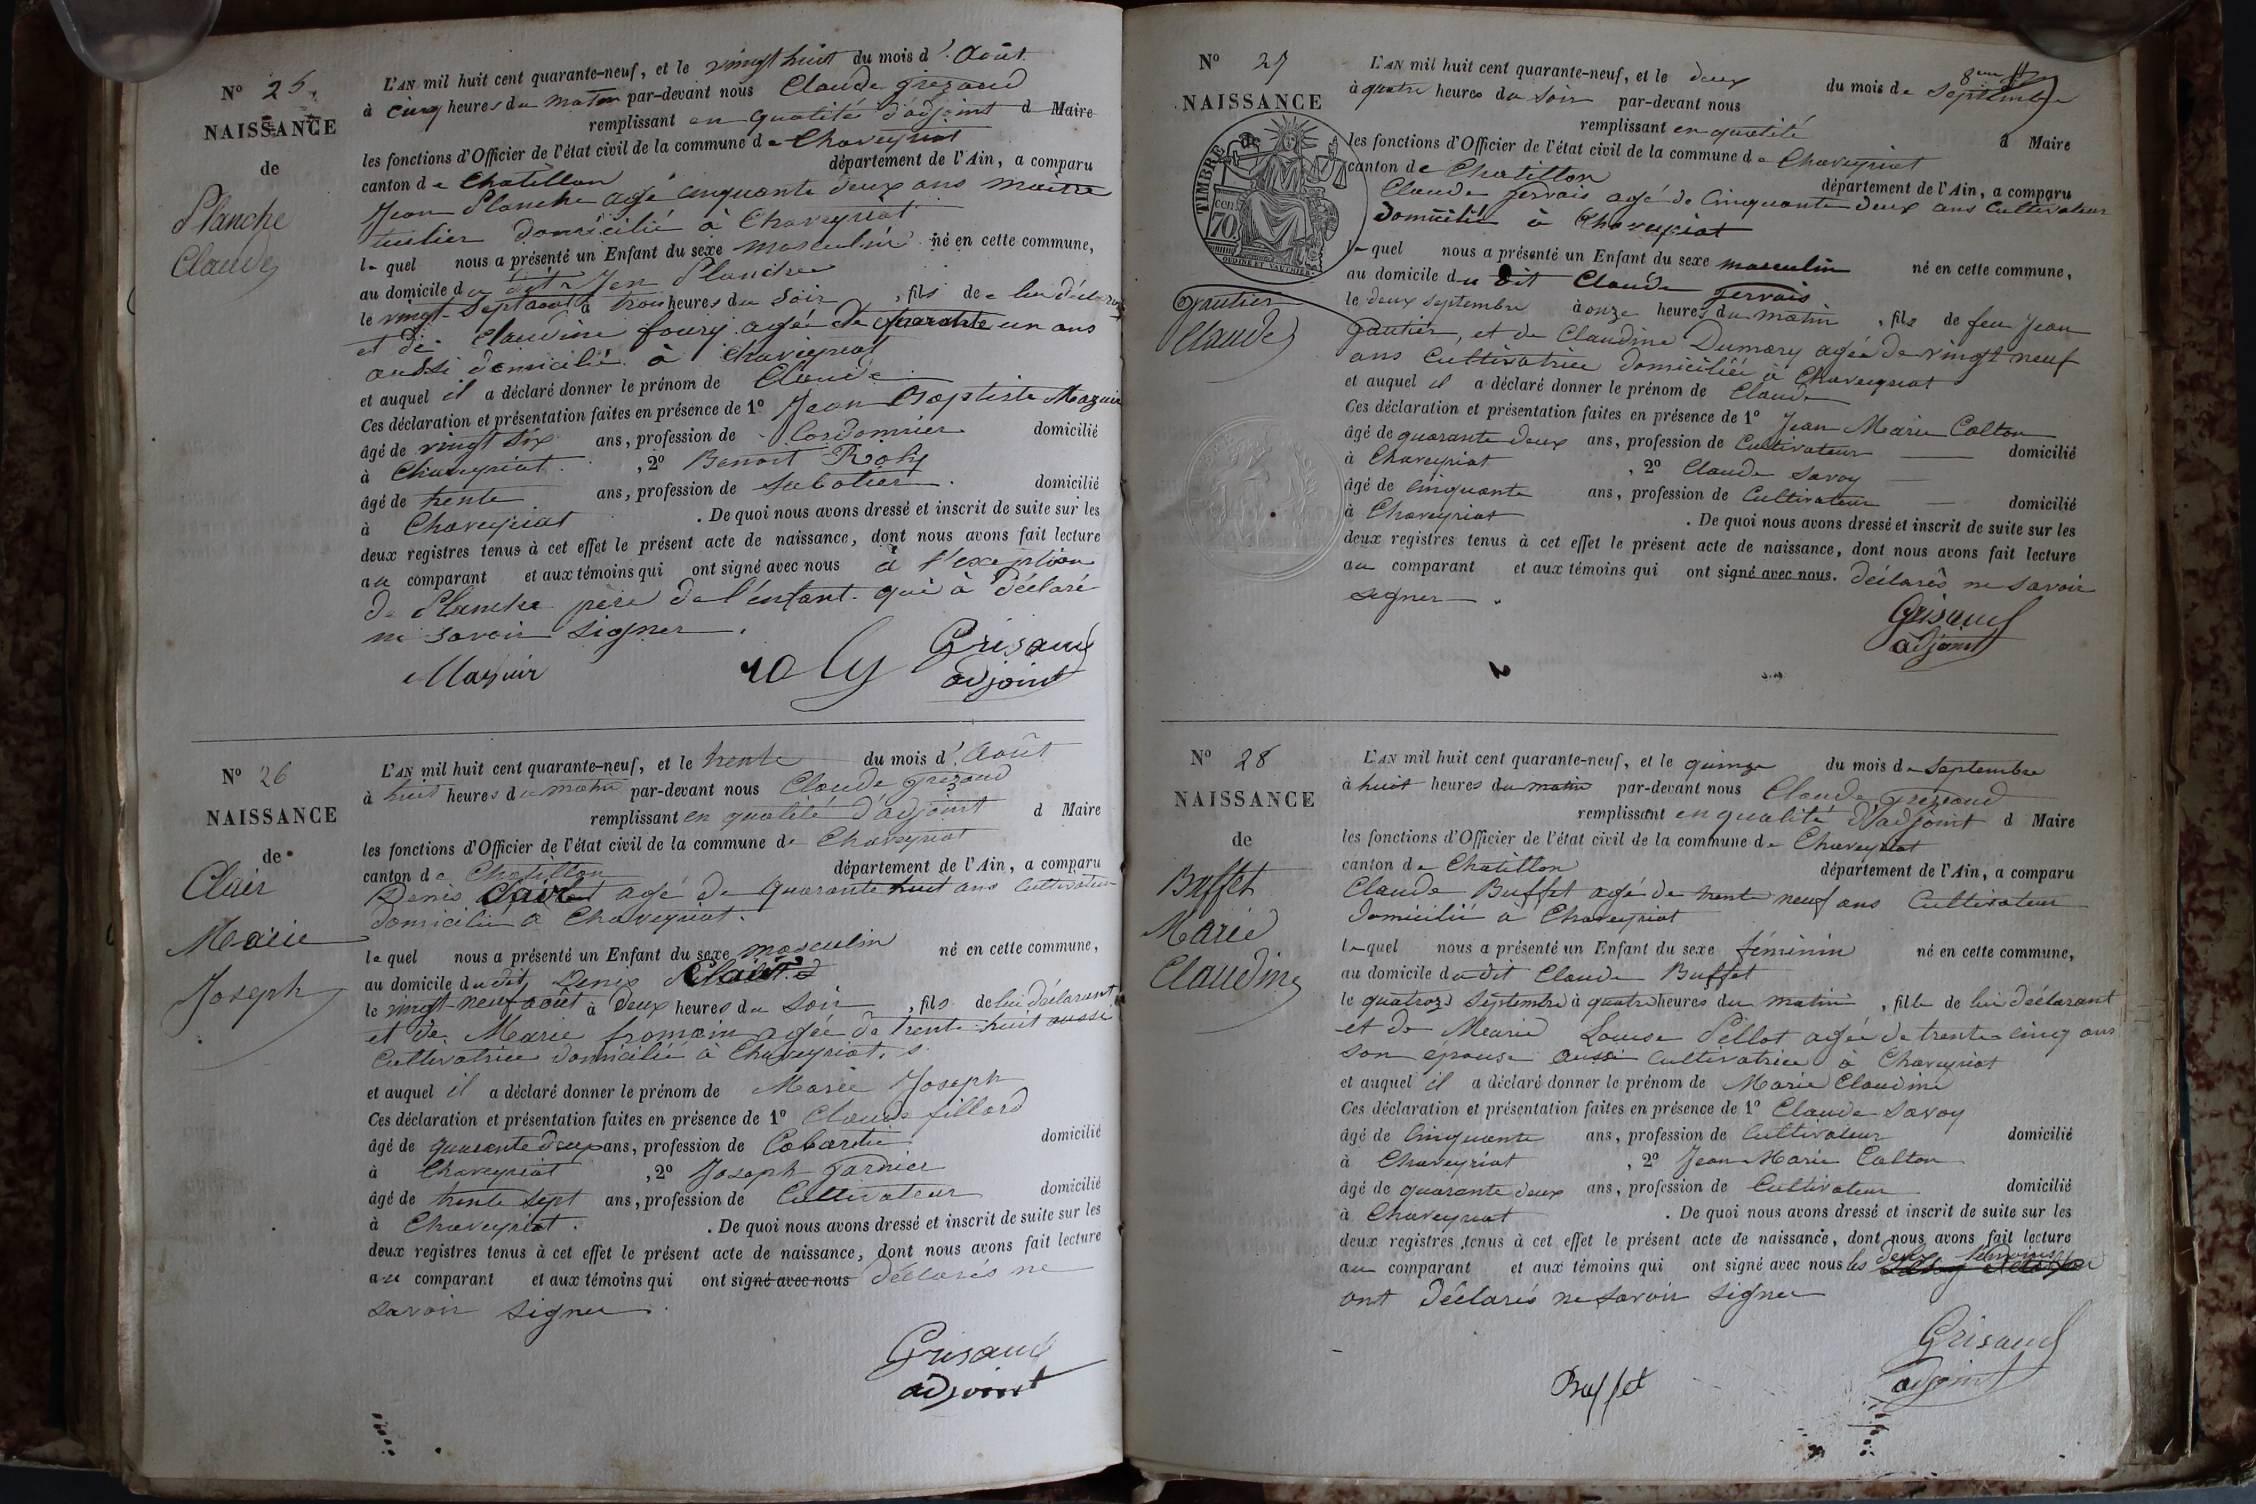 N° 25.
NAISSANCE
de
Planche
Claude
L'AN mil huit cent quarante-neuf, et le vingt huit du mois d'Août
à cinq heures du matin par-devant nous Claude grezaud
remplissant en qualité d'adjoint d Maire
les fonctions d'Officier de l'état civil de la commune de Chaveyriat
canton de Chatillon département de l'Ain, a comparu
Jean Planche agé cinquante deux ans maitre
tuilier domicilié à Chaveyriat
lequel nous a présenté un Enfant du sexe masculin né en cette commune,
au domicile du dit Jen Planche
le vingt-sept aout à trois heures du soir, fils de lui déclarant
et de Claudine foury agée de quarante un ans
aussi domicilié à Chaveyriat
et auquel il a déclaré donner le prénom de Claude
Ces déclaration et présentation faites en présence de 1° Jean Baptiste Mazuir
âgé de vingt six ans, profession de Cordonnier domicilié
à Chaveyriat. , 2° Benoit Roly
âgé de trente ans, profession de sabotier. domicilié
à Chaveyriat . De quoi nous avons dressé et inscrit de suite sur les
deux registres tenus à cet effet le présent acte de naissance, dont nous avons fait lecture
au comparant et aux témoins qui ont signé avec nous à l'exception
de Planche père de l'enfant qui à déclaré
ne savoir signer.
Mazuir roly Grisaud
adjoint
N° 26
NAISSANCE
de
Clair
Marie
Joseph
L'AN mil huit cent quarante-neuf, et le trente du mois d'Août
à huit heures du matin par-devant nous Claude grezaud
remplissant en qualité d'adjoint d Maire
les fonctions d'Officier de l'état civil de la commune de Chaveyriat
canton de Chatillon département de l'Ain, a comparu
Denis Clair agé de quarante huit ans cultivateur
domicilié à Chaveyriat.
lequel nous a présenté un Enfant du sexe masculin né en cette commune,
au domicile du dit Denis Clair
le vingt-neuf aout à deux heures du soir, fils de lui déclarant
et de Marie fromain agée de trente huit aussi
Cultivatrice domicilié à Chaveyriat.
et auquel il a déclaré donner le prénom de Marie Joseph
Ces déclaration et présentation faites en présence de 1° Claude fillard
âgé de quarante deux ans, profession de Cabartie domicilié
à Chaveyriat , 2° Joseph garnier
âgé de trente sept ans, profession de Cultivateur domicilié
à Chaveyriat. . De quoi nous avons dressé et inscrit de suite sur les
deux registres tenus à cet effet le présent acte de naissance, dont nous avons fait lecture
au comparant et aux témoins qui ont signé avec nous déclarés ne
savoir signer.
Grisaud
adjoint
N° 27
NAISSANCE
de
TIMBRE
70 cen
OUDINE ET VAUTHIER
gautier
Claude
L'AN mil huit cent quarante-neuf, et le deux du mois de 8bre septembre
à quatre heures du soir par-devant nous
remplissant en qualité d Maire
les fonctions d'Officier de l'état civil de la commune de Chaveyriat
canton de Chatillon département de l'Ain, a comparu
Claude gervais agé de Cinquante deux ans Cultivateur
domicilié à Chaveyriat
lequel nous a présenté un Enfant du sexe masculin né en cette commune,
au domicile du dit Claude gervais
le deux septembre à onze heures du matin, fils de feu Jean
gautier, et de Claudine Dumary agée de vingt neuf
ans Cultivatrice domiciliée à Chaveyriat
et auquel il a déclaré donner le prénom de Claude
Ces déclaration et présentation faites en présence de 1° Jean Marie Calton
âgé de quarante deux ans, profession de Cultivateur domicilié
à Chaveyriat , 2° Claude Savoy
âgé de Cinquante ans, profession de Cultivateur domicilié
à Chaveyriat . De quoi nous avons dressé et inscrit de suite sur les
deux registres tenus à cet effet le présent acte de naissance, dont nous avons fait lecture
au comparant et aux témoins qui ont signé avec nous. déclarés ne savoir
signer.
Grisaud
adjoint
N° 28
NAISSANCE
de
Buffet
Marie
Claudine
L'AN mil huit cent quarante-neuf, et le quinze du mois de septembre
à huit heures du matin par-devant nous Claude grezaud
remplissant en qualité d'adjoint d Maire
les fonctions d'Officier de l'état civil de la commune de Chaveyriat
canton de Chatillon département de l'Ain, a comparu
Claude Buffet agé de trente neuf ans Cultivateur
domicilié à Chaveyriat
lequel nous a présenté un Enfant du sexe féminin né en cette commune,
au domicile du dit Claude Buffet
le quatorze septembre à quatre heures du matin, fille de lui déclarant
et de Marie Louise Pillot agée de trente cinq ans
son épouse aussi cultivatrice à Chaveyriat
et auquel il a déclaré donner le prénom de Marie Claudine
Ces déclaration et présentation faites en présence de 1° Claude Savoy
âgé de Cinquante ans, profession de Cultivateur domicilié
à Chaveyriat , 2° Jean Marie Calton
âgé de quarante deux ans, profession de Cultivateur domicilié
à Chaveyriat . De quoi nous avons dressé et inscrit de suite sur les
deux registres tenus à cet effet le présent acte de naissance, dont nous avons fait lecture
au comparant et aux témoins qui ont signé avec nous les deux témoins
ont déclarés ne savoir signer
Grisaud
Buffet adjoint